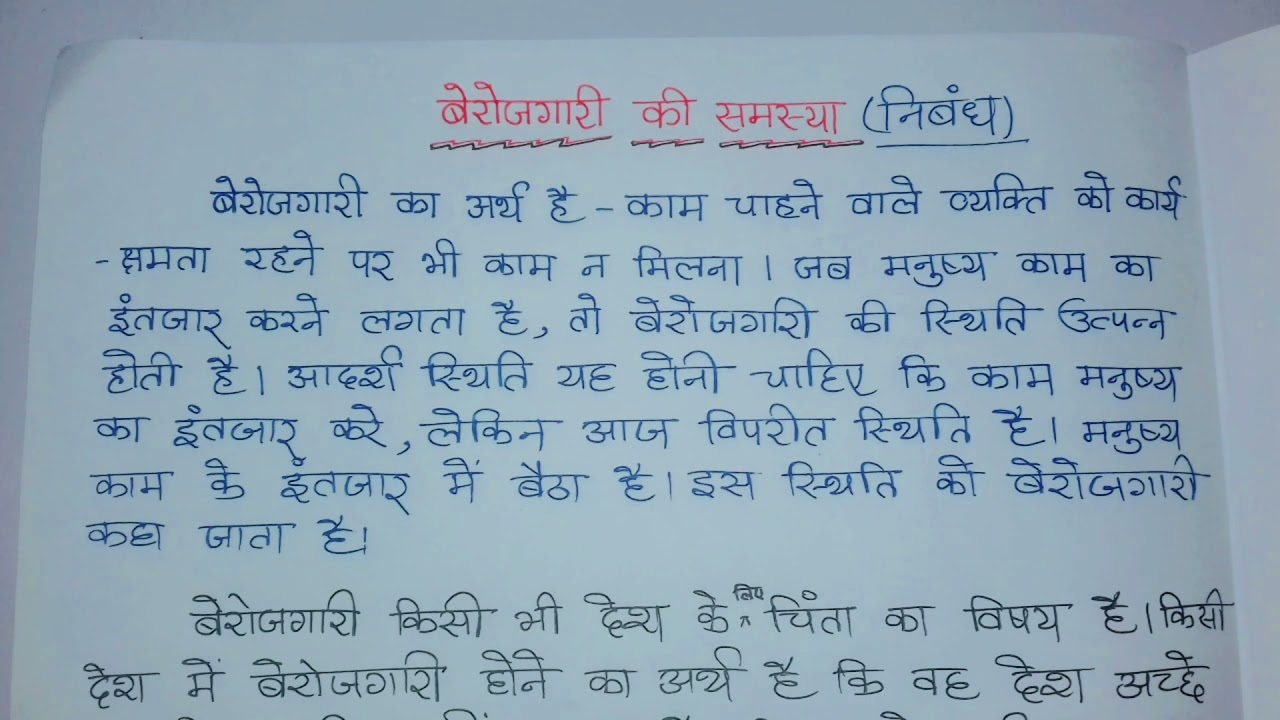 बेरोजगारी की समस्या (निबंध)
बेरोजगारी का अर्थ है - काम चाहने वाले व्यक्ति को कार्य
- क्षमता रहने पर भी काम न मिलना। जब मनुष्य काम का
इंतजार करने लगता है, तो बेरोजगारी की स्थिति उत्पन्न
होती है। आदर्श स्थिति यह होनी चाहिए कि काम मनुष्य
का इंतजार करे, लेकिन आज विपरीत स्थिति है। मनुष्य
काम के इंतजार में बैठा है। इस स्थिति को बेरोजगारी
कहा जाता है।
बेरोजगारी किसी भी देश के लिए चिंता का विषय है। किसी
देश में बेरोजगारी होने का अर्थ है कि वह देश अच्छे